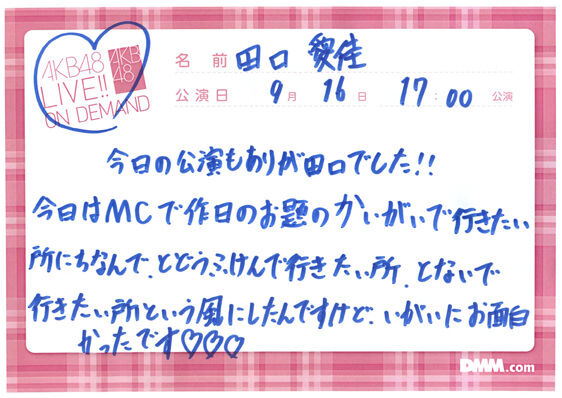 AKB48
LIVE!!
ON DEMAND
AKB
48
名前 田口 愛佳
公演日 9月 16日 17:00 公演
今日の公演もありが田口でした!!
今日はMCで作日のお題のかいがいで行きたい
所にちなんで、とどうふけんで行きたい所、とないで
行きたい所という風にしたんですけど、いがいにお面白
かったです♡♡♡
DMM.com